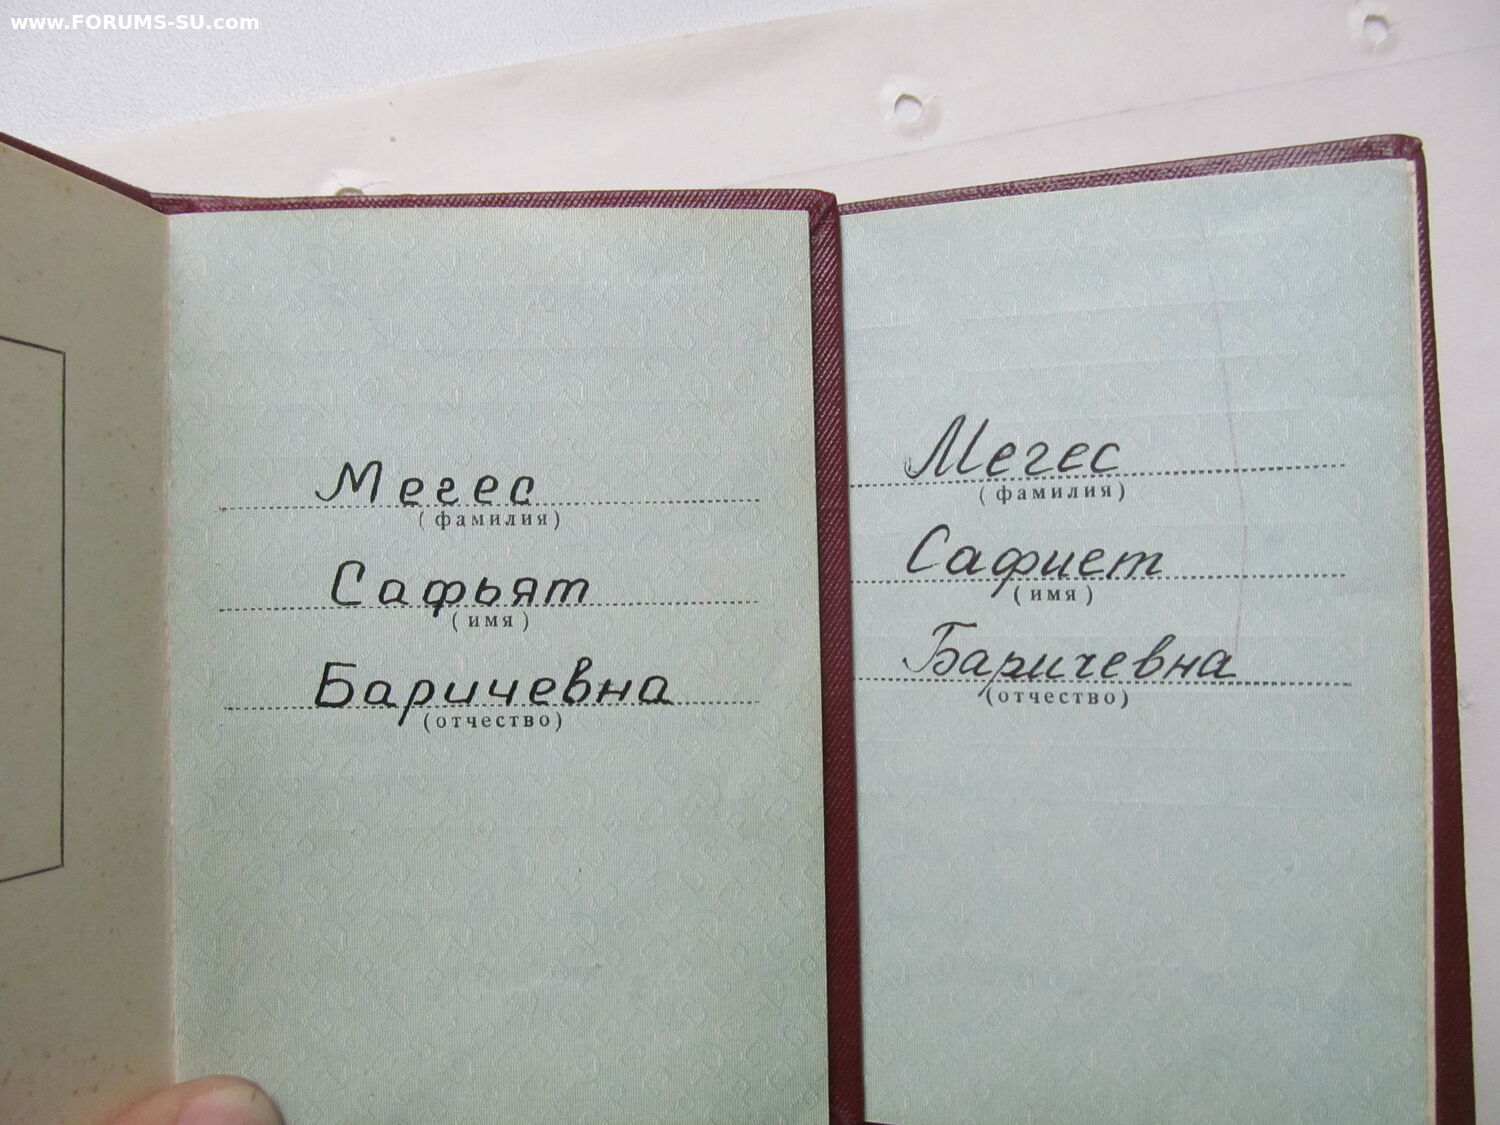 www.FORUMS-SU.com
Мегес
(фамилия)
Сафьят
(имя)
Баричевна
(отчество)
Мегес
(фамилия)
Сафиет
(имя)
Баричевна
(отчество)